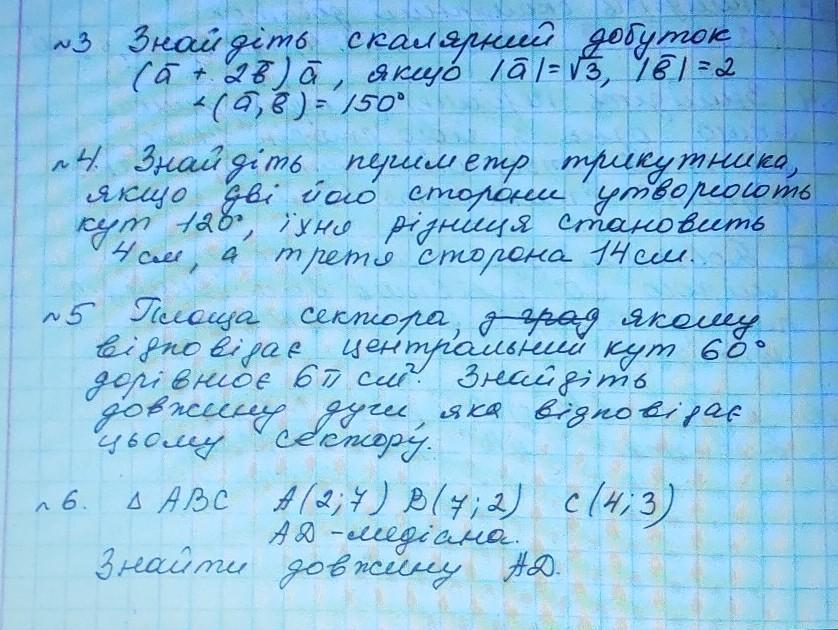 №3 Знайдіть скалярний добуток
(ā + 2b̄) ā, якщо |ā|=√3, |b̄|=2
∠(ā, b̄) = 150°
№4. Знайдіть периметр трикутника,
якщо дві його сторони утворюють
кут 120°, їхня різниця становить
4см, а третя сторона 14см.
№5 Площа сектора, якому
відповідає центральний кут 60°
дорівнює 6π см². Знайдіть
довжину дуги, яка відповідає
цьому сектору.
№6. △ ABC A(2;7) B(7;2) C(4;3)
AD - медіана.
Знайти довжину AD.